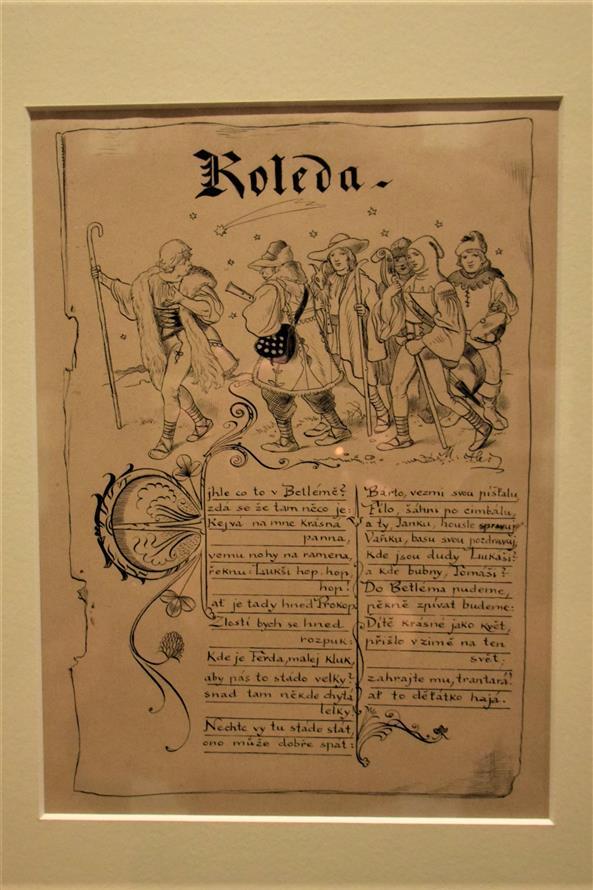 Koleda
jhle co to v Betlémě?
zda se že tam něco je:
Kejvá na mne krásná
panna,
vemu nohy na ramena,
řeknu: Lukši hop, hop,
hop!
ať je tady hned Prokop
Zlostí bych se hned
rozpuk:
Kde je Ferda, malej kluk,
aby pás to stádo velky?
snad tam někde chytá
lelky!
Nechte vy tu stádo stát,
ono může dobře spat:
Barto, vezmi svou píšťalu,
Filo, šáhni po cimbálu,
a ty, Janku, housle spravuj,
Vaňku, basu svou pozdravuj,
Kde jsou dudy Lukáši?
a kde bubny, Tomáši?
Do Betléma pudeme,
pěkně zpívat budeme:
Dítě krásné jako květ,
přišlo v zimě na ten
svět;
zahrajte mu, trantará!
ať to děťátko hajá.